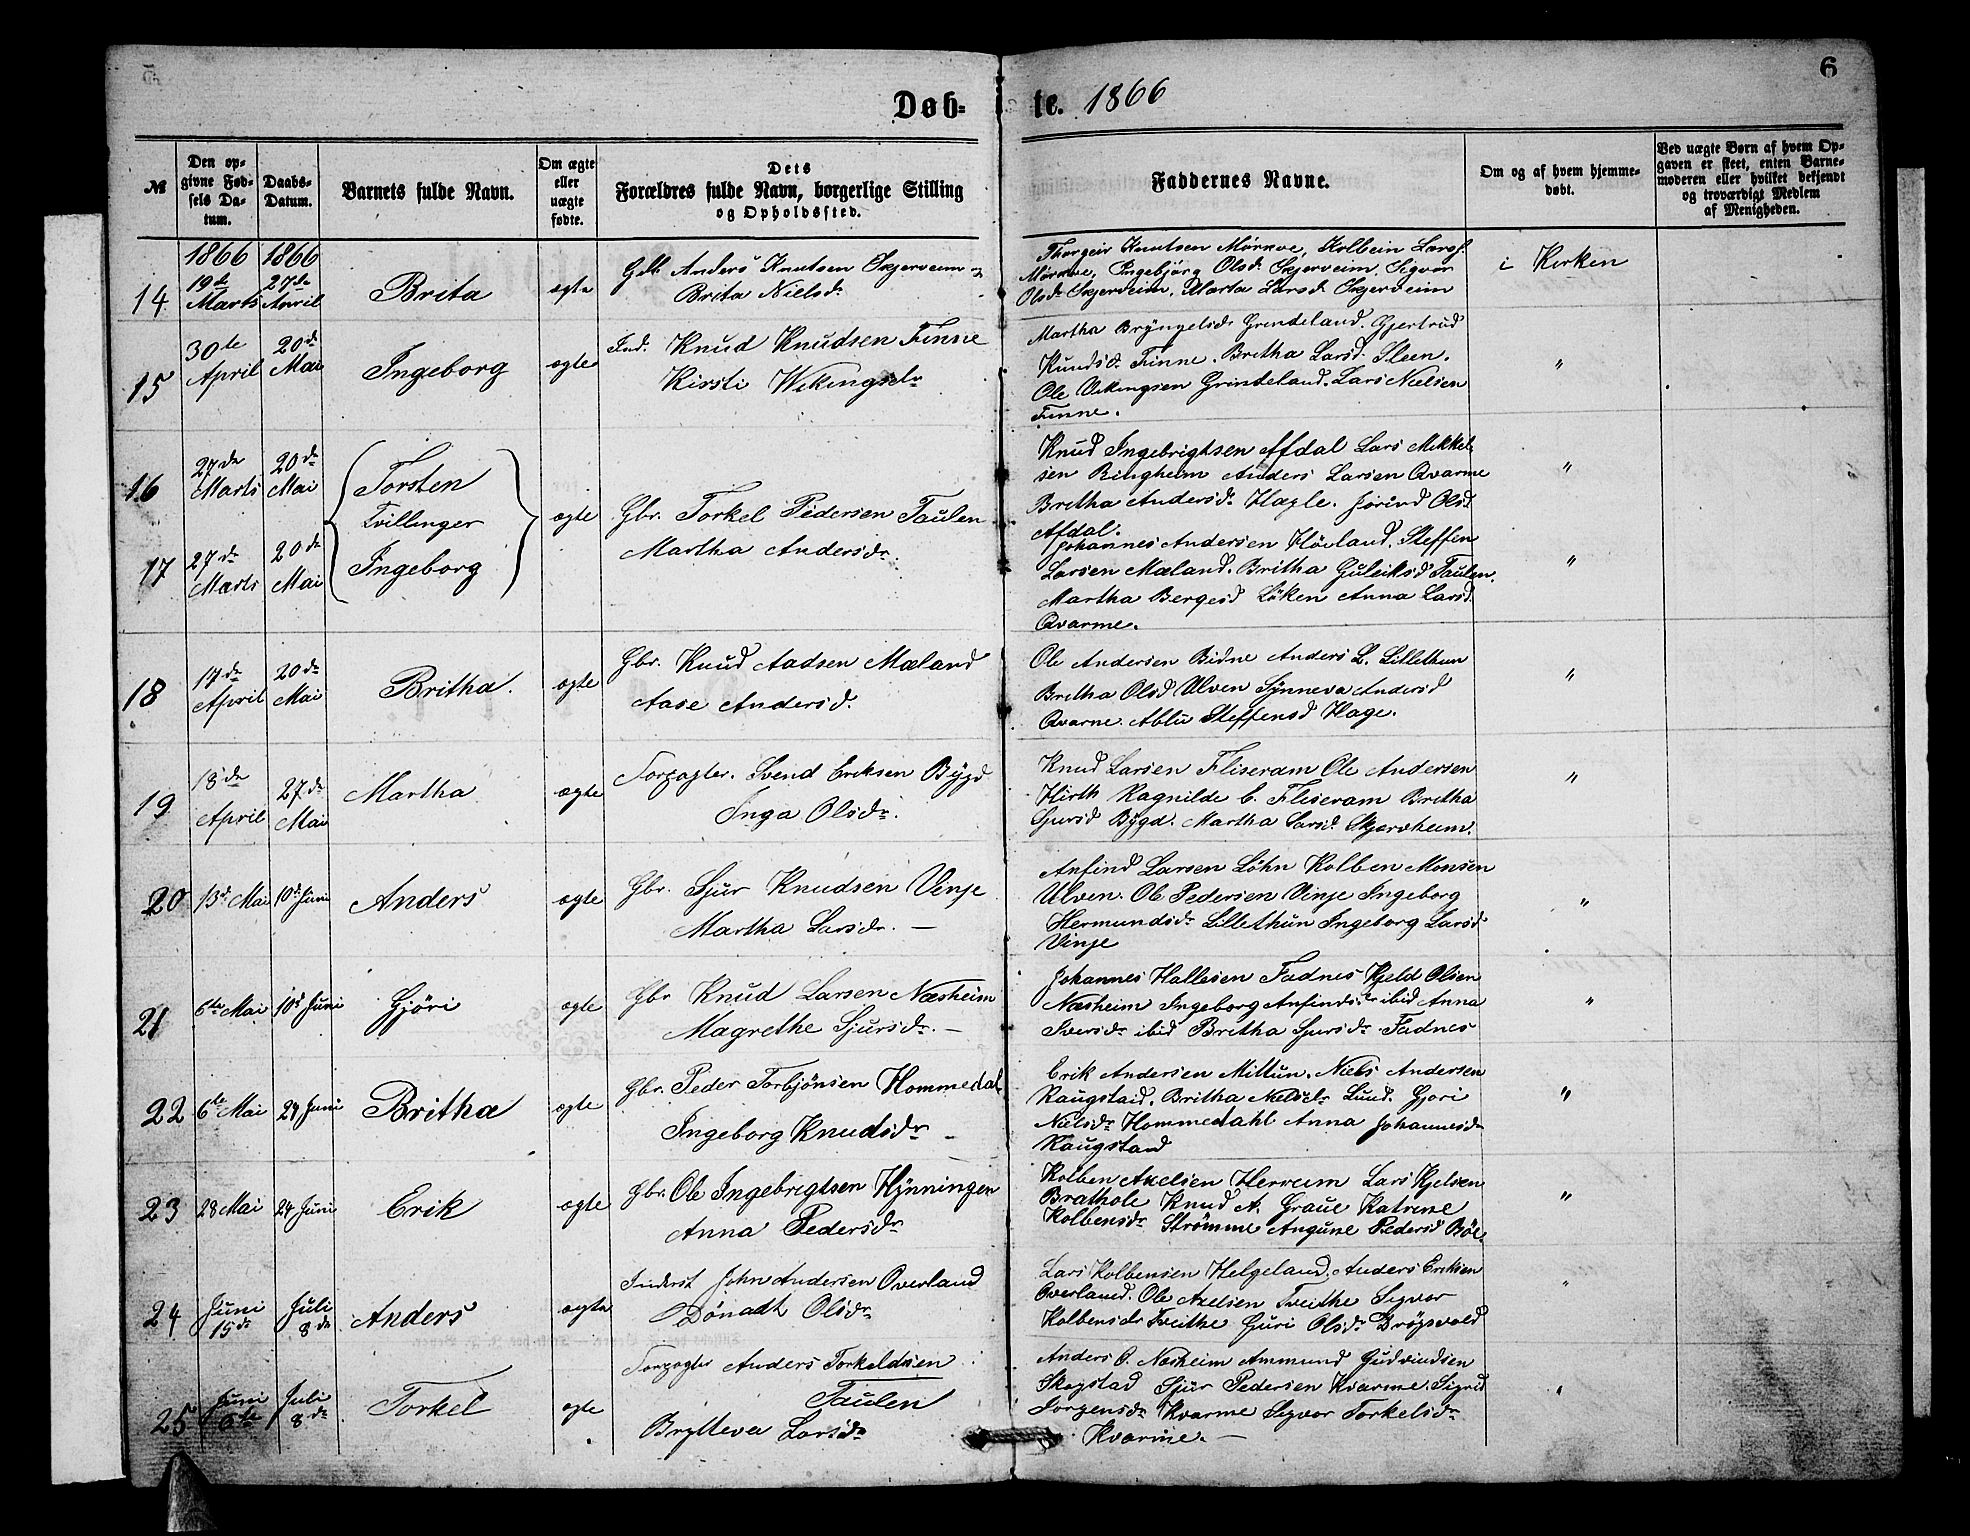 6
Døb- te. 1866
№
Den opgivne Fødsels Datum.
Daabs-Datum.
Barnets fulde Navn.
Om ægte eller uægte fødte.
Dets Forældres fulde Navn, borgerlige Stilling og Opholdssted.
Faddernes Navne.
Om og af hvem hjemmedøbt.
Ved uægte Børn af hvem Opgaven er skeet, enten Barnemoderen eller hvilket bekjendt og troværdigt Medlem af Menigheden.
14 1866 19de Marts 1866 27de April Brita ægte
Gdb. Anders Knutsen Skjerveim
Brita Nielsdr
Thorgeir Knutsen Mørkve, Kolbein Larss.
Mørkve, Ingebjörg Olsd. Skjerveim, Sigvor
Olsdr Skjerveim, Marta Larsd. Skjerveim
i Kirken
15 30te April 20de Mai Ingeborg ægte
Ind. Knud Knudsen Finne
Kirsti Wikingsdr
Martha Bryngelsdr Grindeland. Gjertrud
Knudsd. Finne. Britha Larsd. Steen.
Ole Vikingsen Grindeland. Lars Nielsen
Finne.
"
16 27de Marts 20de Mai Torsten
Tvillinger
17 27de Marts 20de Mai Ingeborg ægte
Gbr. Torkel Pedersen Taulen
Martha Andersdr.
Knud Ingebrigtsen Afdal Lars Mikkel
sen Ringheim Anders Larsen Qvarme
Britha Andersdr Hægle. Jorind Olsd
Afdal.
"
Johannes Andersen Höiland. Steffen
Larsen Mæland. Britha Guleiksd Taulen.
Martha Bergesd Löken Anna Larsd
Qvarme.
"
18 17de April 20de Mai Britha. ægte
Gbr. Knud Aadsen Mæland
Aase Andersd.
Ole Andersen Bidne Anders L. Lillethun
Britha Olsd Ulven Synneva Andersd
Qvarne. Ablu Steffensd Hage.
"
19 18de April 27de Mai Martha ægte
Forpagter. Svend Eriksen Bygd
Inga Olsdr.
Knud Larsen Fliseram Ole Andersen
Hirth Ragnilde E. Fliseram Britha
Sjursd Bygd. Martha Larsd. Skjerveheim.
"
20 13de Mai 10de Juni Anders ægte
Gbr. Sjur Knudsen Vinje
Martha Larsdr. —
Anfind Larsen Löhn Kolben Monsen
Ulven. Ole Pedersen Vinje Ingeborg
Hermundsdr Lillethun Ingeborg Larsd
Vinje
"
21 6te Mai 10de Juni Gjöri ægte
Gbr Knud Larsen Næsheim
Magrethe Sjursdr. —
Johannes Hallesen Fadnes Kjeld Olsen
Næsheim Ingeborg Anfindsdr ibid Anna
Iversdr ibid Britha Sjursdr Fadnes
"
22 6te Mai 24 Juni Britha ægte
Gbr. Peder Torbjönsen Hommedal
Ingeborg Knudsdr —
Erik Andersen Miltun. Niels Andersen
Raugstad. Britha Nielsdr Lund. Gjori
Nielsdr Hommedahl Anna Johannesdr
Raugstad
"
23 28 Mai 24 Juni Erik ægte
Gbr. Ole Ingebrigtsen Hynningen
Anna Pedersdr
Kolben Axelsen Herveim Lars Kjelsen
Brathole Knud A. Graue Katrine
Kolbensdr Strömme Angune Pedersd Böe.
"
24 Juni 15de Juli 8de Anders ægte
Inderst John Andersen Overland
Dönadt Olsdr
Lars Kolbensen Helgeland. Anders Eriksen
Overland. Ole Axelsen Tveithe Sigvor
Kolbensdr Tveithe Guri Olsdr Drögsvold
"
25 Juni 6te Juli 8de Torkel ægte
Forpagter Anders Torkeldsen
Taulen
Brytteva Larsdr
Anders O. Næsheim Ammund Gudvindsen
Skogstad Sjür Pedersen Kvarme. Sigrid
Torgensdr Kvarme Sigvor Torkelsdr
Kvarme. —
"